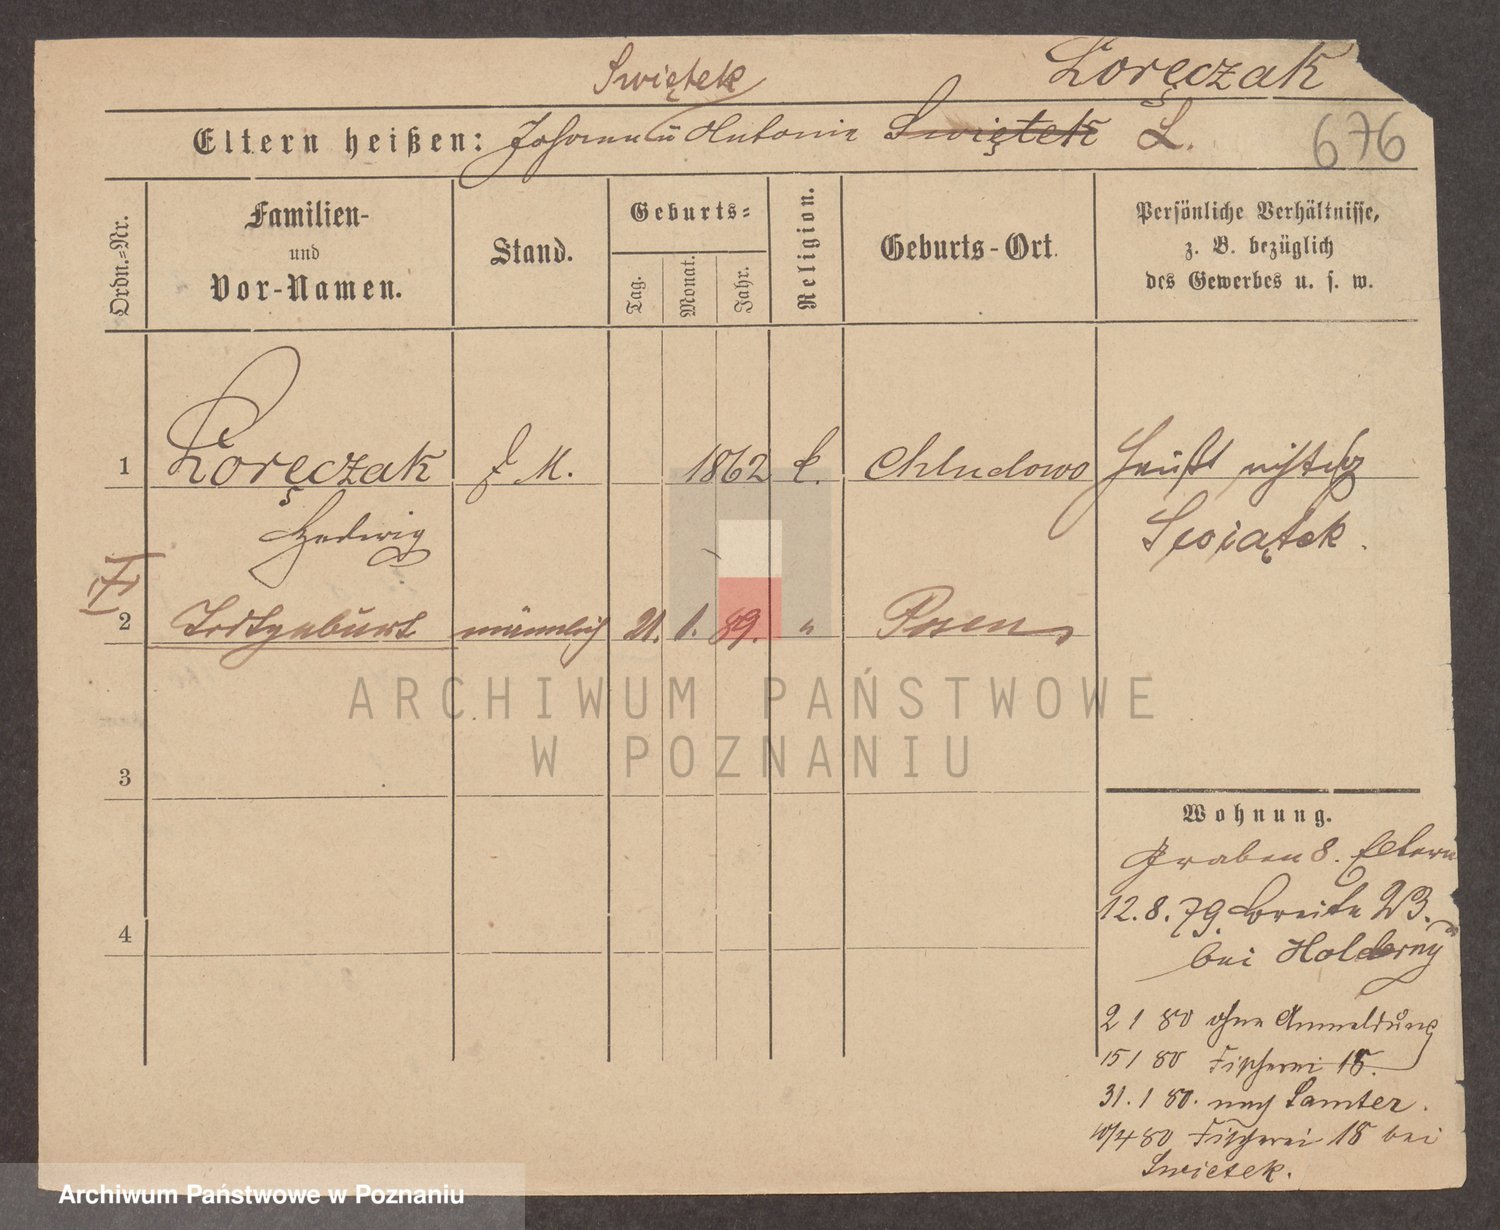 Swiętek
Loręczak
Eltern heißen: Johann u Antonie Swiętek L.
676
Ordn.-Nr.
Familien-
und
Vor-Namen.
Stand.
Geburts-
Tag.
Monat.
Jahr.
Religion.
Geburts-Ort.
Persönliche Verhältnisse,
z. B. bezüglich
des Gewerbes u. s. w.
1 Loręczak M. 1862 k. Chludowo heißt richtig
Hedwig Swiątek.
2 Todtgeburt männlich 21. 1. 89. " Posen
3
Wohnung.
Graben 8. Eltern
12.8.79. Breite 23.
bei
4
2 1 80 ohne Anmeldung
15 1 80 Fischerei 18.
31. 1 80. nach Samter.
10/4 80 Fischerei 18 bei
Swietek.
ARCHIWUM PAŃSTWOWE
W POZNANIU
Archiwum Państwowe w Poznaniu